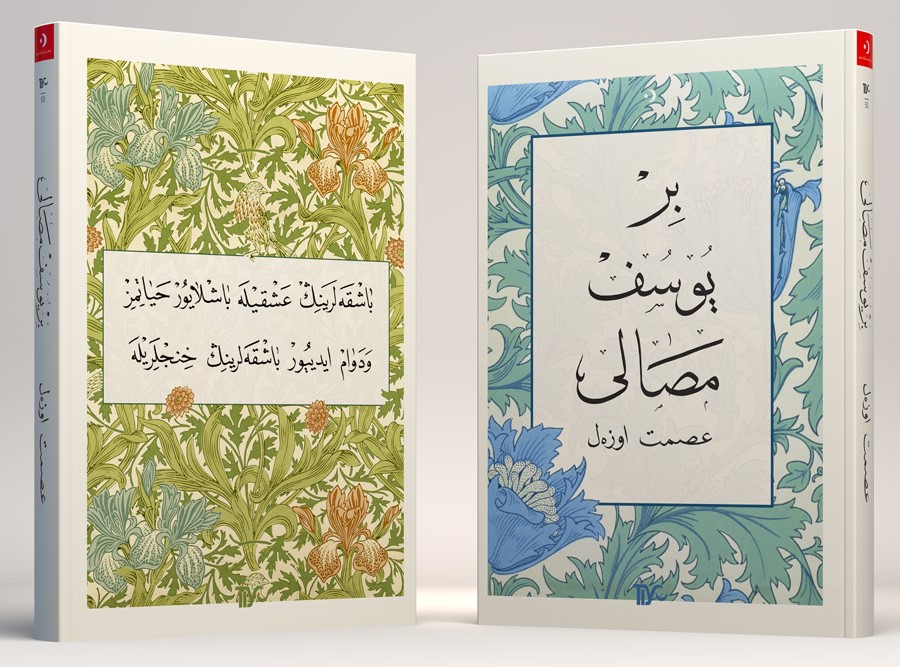 باشقه‌لرینڭ عشقیله باشلایور حیاتمز
ودوام ایدییور باشقه‌لرینڭ خنجرلریله
بر
یوسف
مصالی
عصمت اوزه‌ل
بر یوسف مصالی
عصمت اوزه‌ل
بر یوسف مصالی
عصمت اوزه‌ل